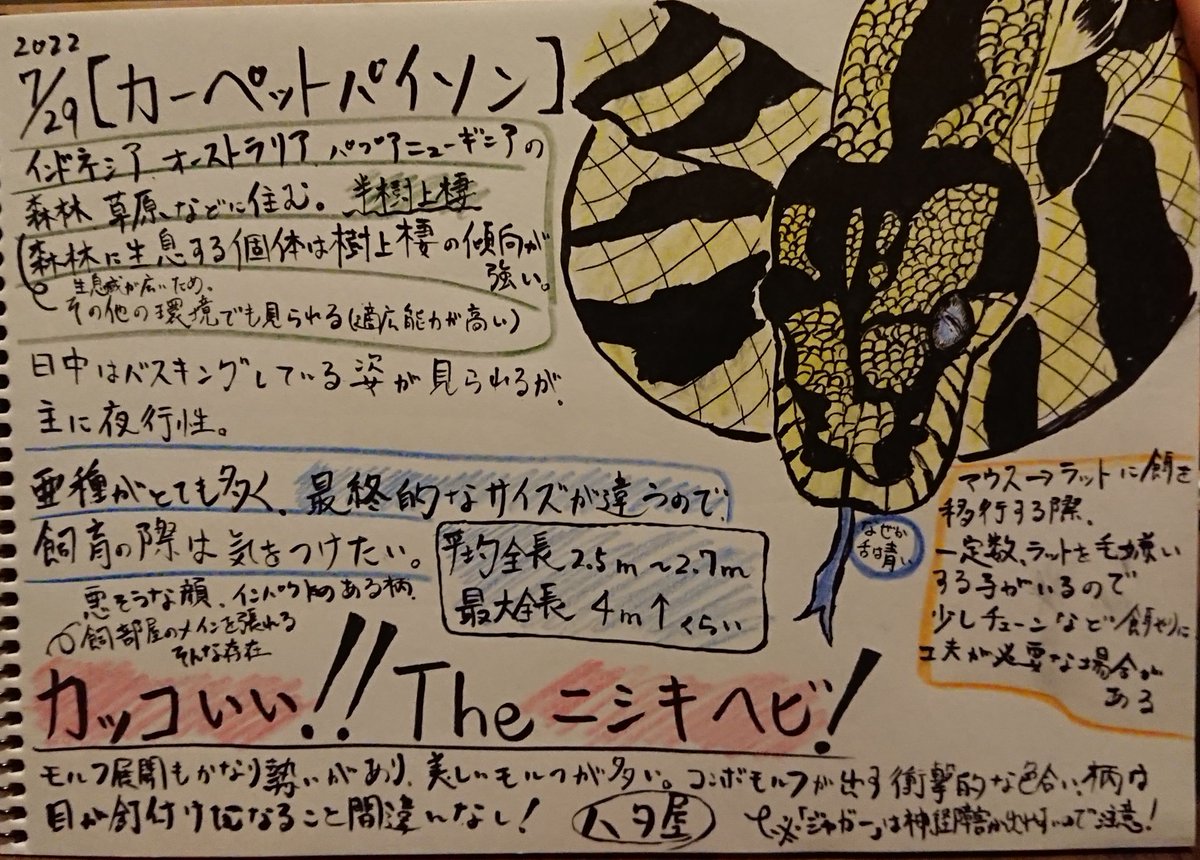 2022
7/29 [カーペットパイソン]
インドネシア オーストラリア、パプアニューギニアの
森林、草原、などに住む。半樹上棲
森林に生息する個体は樹上棲の傾向が
強い。
生息域が広いため、
その他の環境でも見られる(適応能力が高い)
日中はバスキングしている姿が見られるが、
主に夜行性。
亜種がとても多く、最終的なサイズが違うので、
飼育の際は気をつけたい。
平均全長 2.5m~2.7m
最大全長 4m↑くらい
なぜか
舌は青い
マウス→ラットに餌を
移行する際、
一定数、ラットを毛嫌い
する子がいるので
少しチェーンなど餌やりに
工夫が必要な場合が
ある
悪そうな顔、インパクトのある柄、
飼部屋のメインを張れる
そんな存在
カッコいい!! The ニシキヘビ!
モルフ展開もかなり勢いがあり、美しいモルフが多い。コンボモルフが出す衝撃的な色合い、柄は
目が釘付けになること間違いなし!
ハタ屋
※「ジャガー」は神経障害が出やすいので注意!